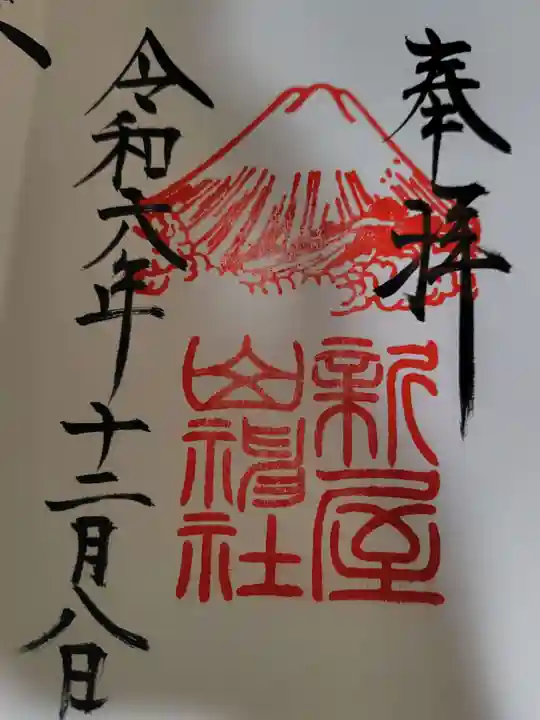 奉拝
新屋
山神社
令和六年十二月八日